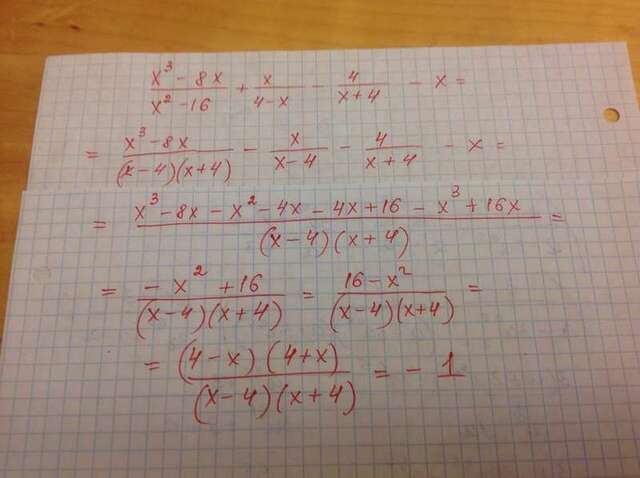 (x³ - 8x)/(x² - 16) + x/(4 - x) - 4/(x + 4) - x =
= (x³ - 8x)/((x - 4)(x + 4)) - x/(x - 4) - 4/(x + 4) - x =
= (x³ - 8x - x² - 4x - 4x + 16 - x³ + 16x)/((x - 4)(x + 4)) =
= (- x² + 16)/((x - 4)(x + 4)) = (16 - x²)/((x - 4)(x + 4)) =
= ((4 - x)(4 + x))/((x - 4)(x + 4)) = - 1